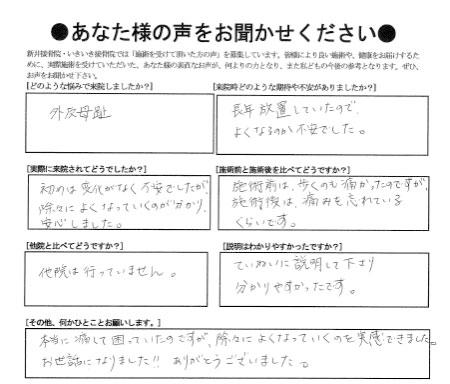 ●あなた様の声をお聞かせください●
新井接骨院・いきいき接骨院では「施術を受けて頂いた方の声」を募集しています。皆様により良い施術や、健康をお届けするた
めに、実際施術を受けていただいた、あなた様の素直なお声が、何よりの力となり、また私どもの今後の参考となります。ぜひ、
お声をお聞かせ下さい。
[どのような悩みで来院しましたか？]
外反母趾
[来院時どのような期待や不安がありましたか？]
長年放置していたので、
よくなるのか不安でした。
[実際に来院されてどうでしたか？]
初めは変化がなく不安でしたが、
除々によくなっていくのが分かり、
安心しました。
[施術前と施術後を比べてどうですか？]
施術前は、歩くのも痛かったのですが、
施術後は、痛みを忘れている
くらいです。
[他院と比べてどうですか？]
他院は行っていません。
[説明はわかりやすかったですか？]
ていねいに説明して下さり
分かりやすかったです。
[その他、何かひとことお願いします。]
本当に痛くて困っていたのですが、除々によくなっていくのを実感できました。
お世話になりました!! ありがとうございました。